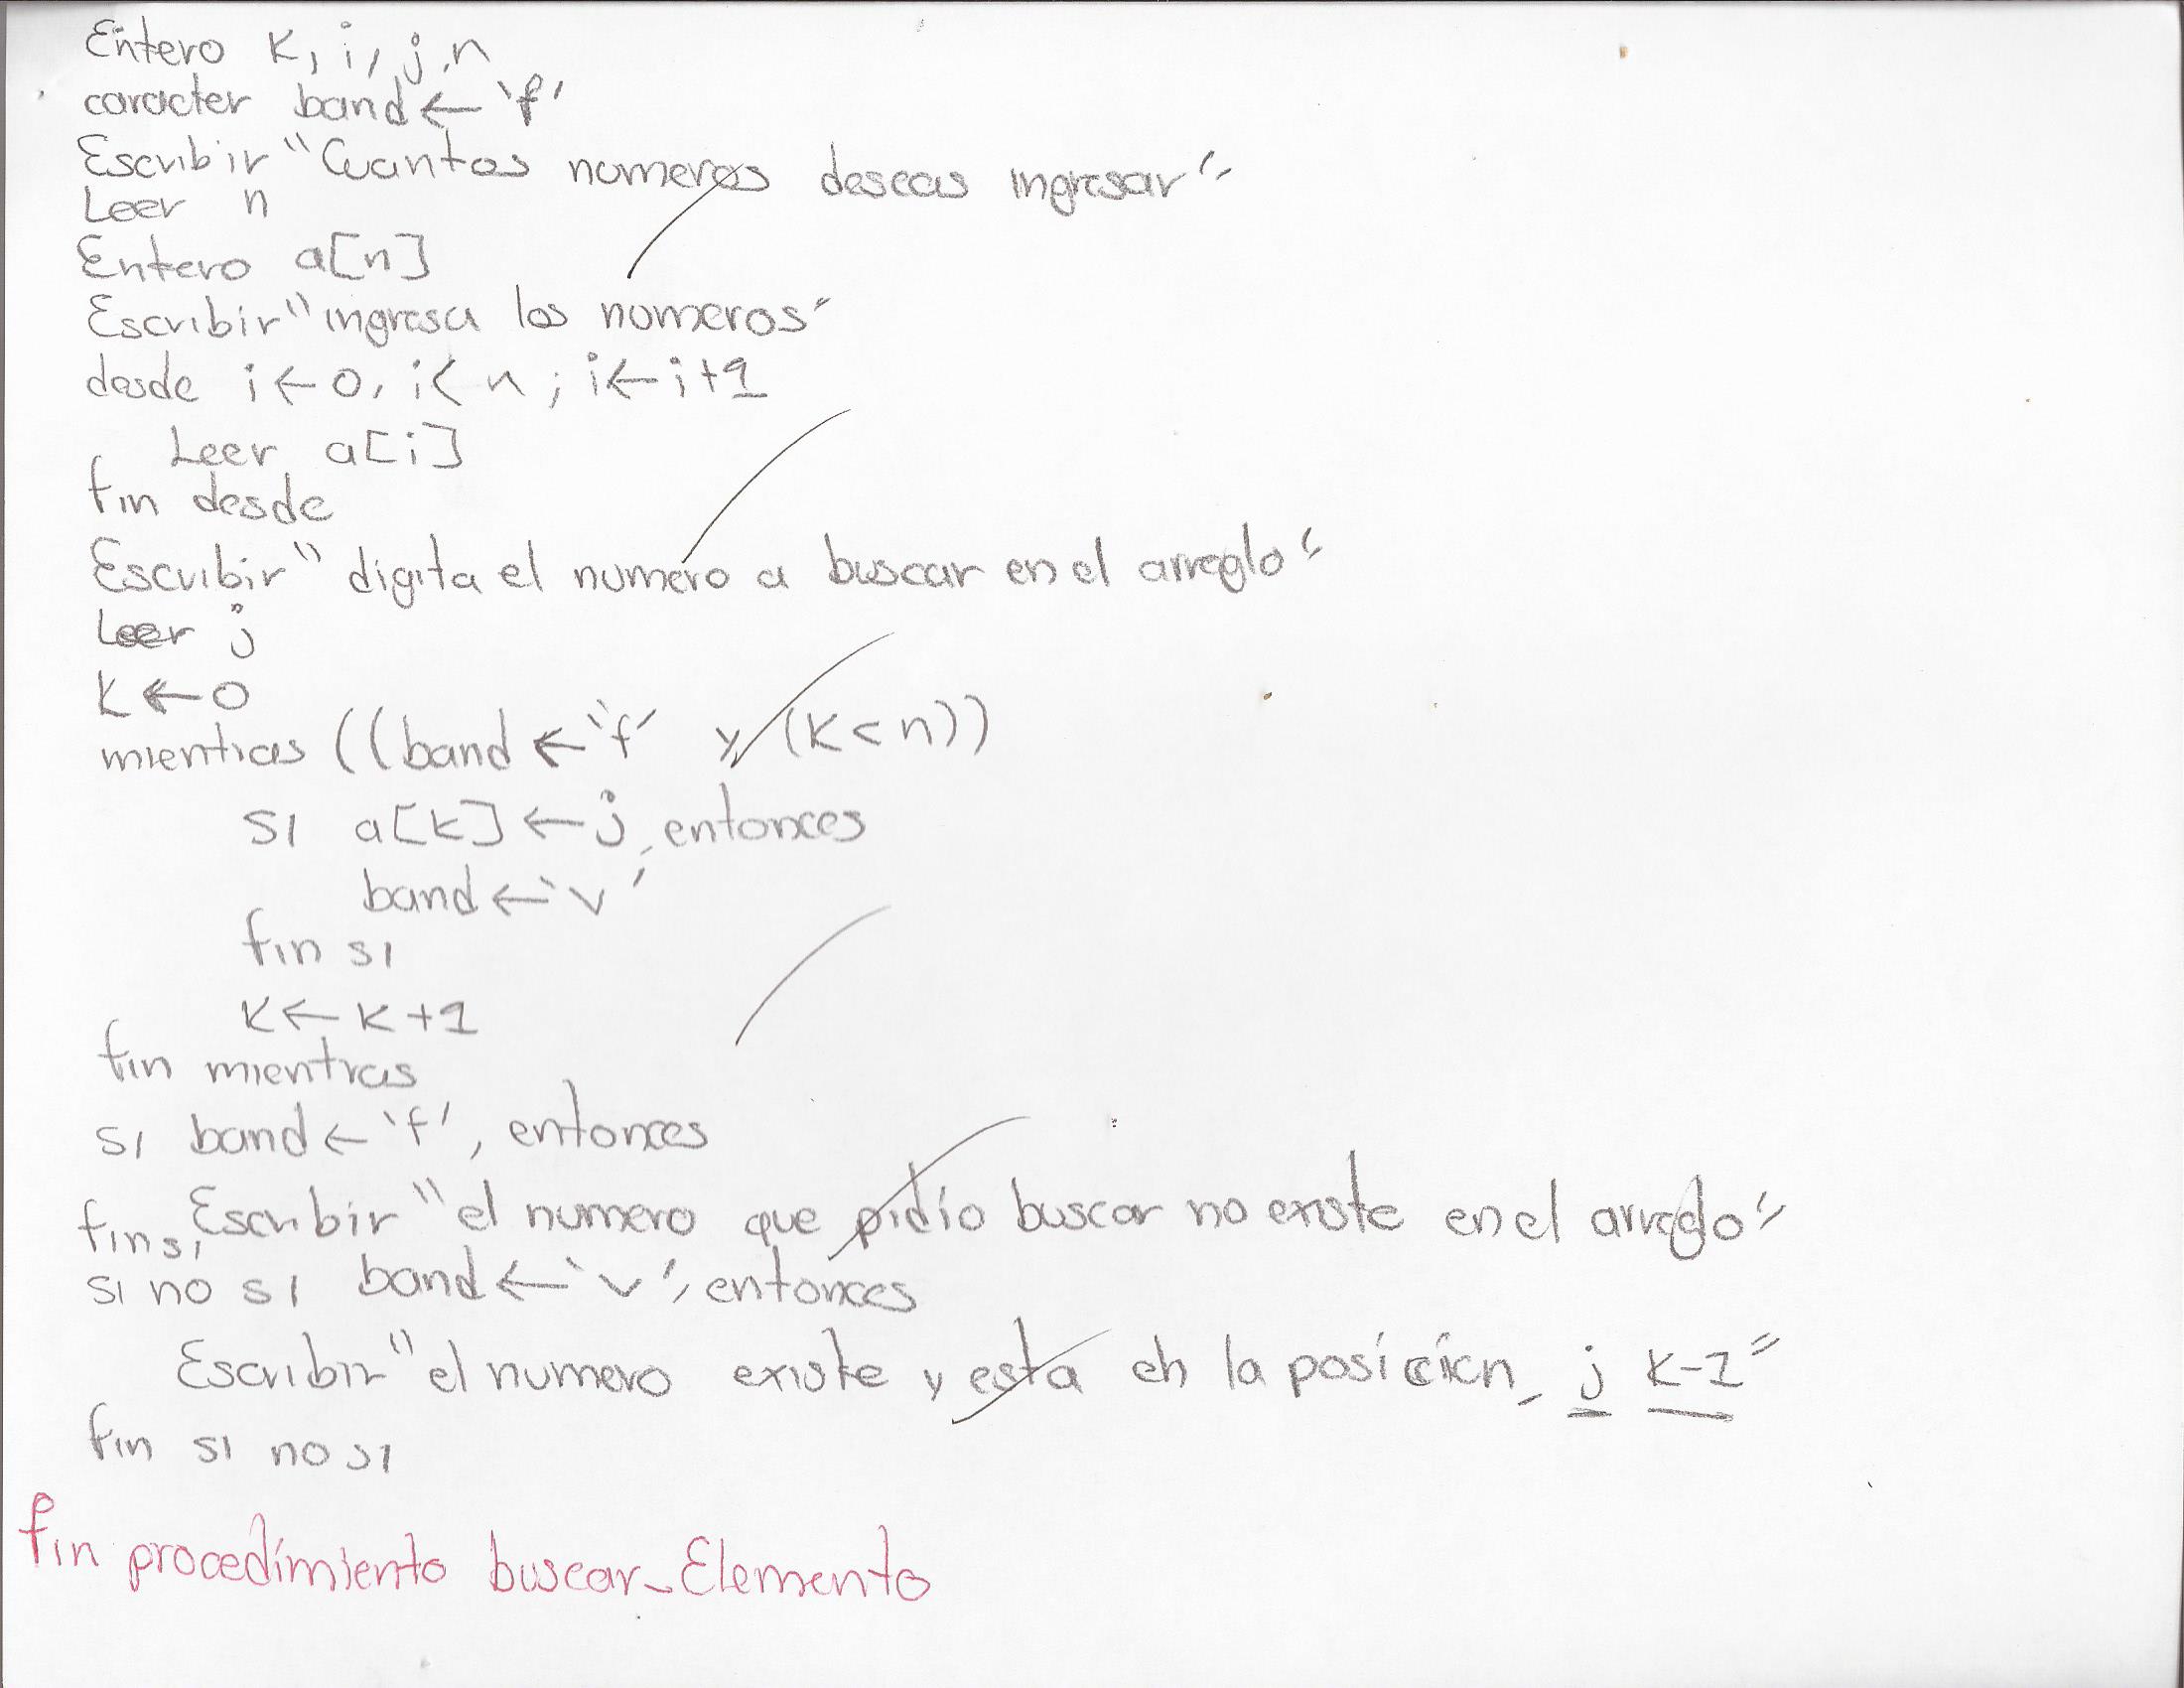 Entero k, i, j, n
caracter band ← 'f'
Escribir "Cuantos numeros deseas ingresar"
Leer n
Entero a[n]
Escribir "ingresa los numeros"
desde i ← 0, i < n ; i ← i+1
Leer a[i]
fin desde
Escribir "digita el numero a buscar en el arreglo"
Leer j
k ← 0
mientras ((band ← 'f' y (k < n))
si a[k] ← j, entonces
band ← 'v'
fin si
k ← k+1
fin mientras
si band ← 'f', entonces
Escribir "el numero que pidio buscar no existe en el arreglo"
fin si
si no si band ← 'v', entonces
Escribir "el numero existe y esta en la posición, j k-1"
fin si no si
fin procedimiento buscar_Elemento